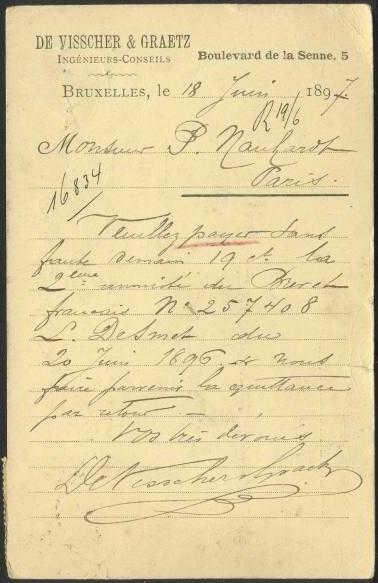 DE VISSCHER & GRAETZ
INGÉNIEURS-CONSEILS
Boulevard de la Senne, 5
BRUXELLES, le 18 Juin 1897
R 19/6
Monsieur P.
Paris.
16834
Veuillez payer sans
faute demain 19 ct la
2ème annuité du Brevet
français No 257408
L. DeSmet du
20 Juin 1896 & nous
faire parvenir la quittance
par retour —
Vos très dévoués.
DeVisscher & Graetz